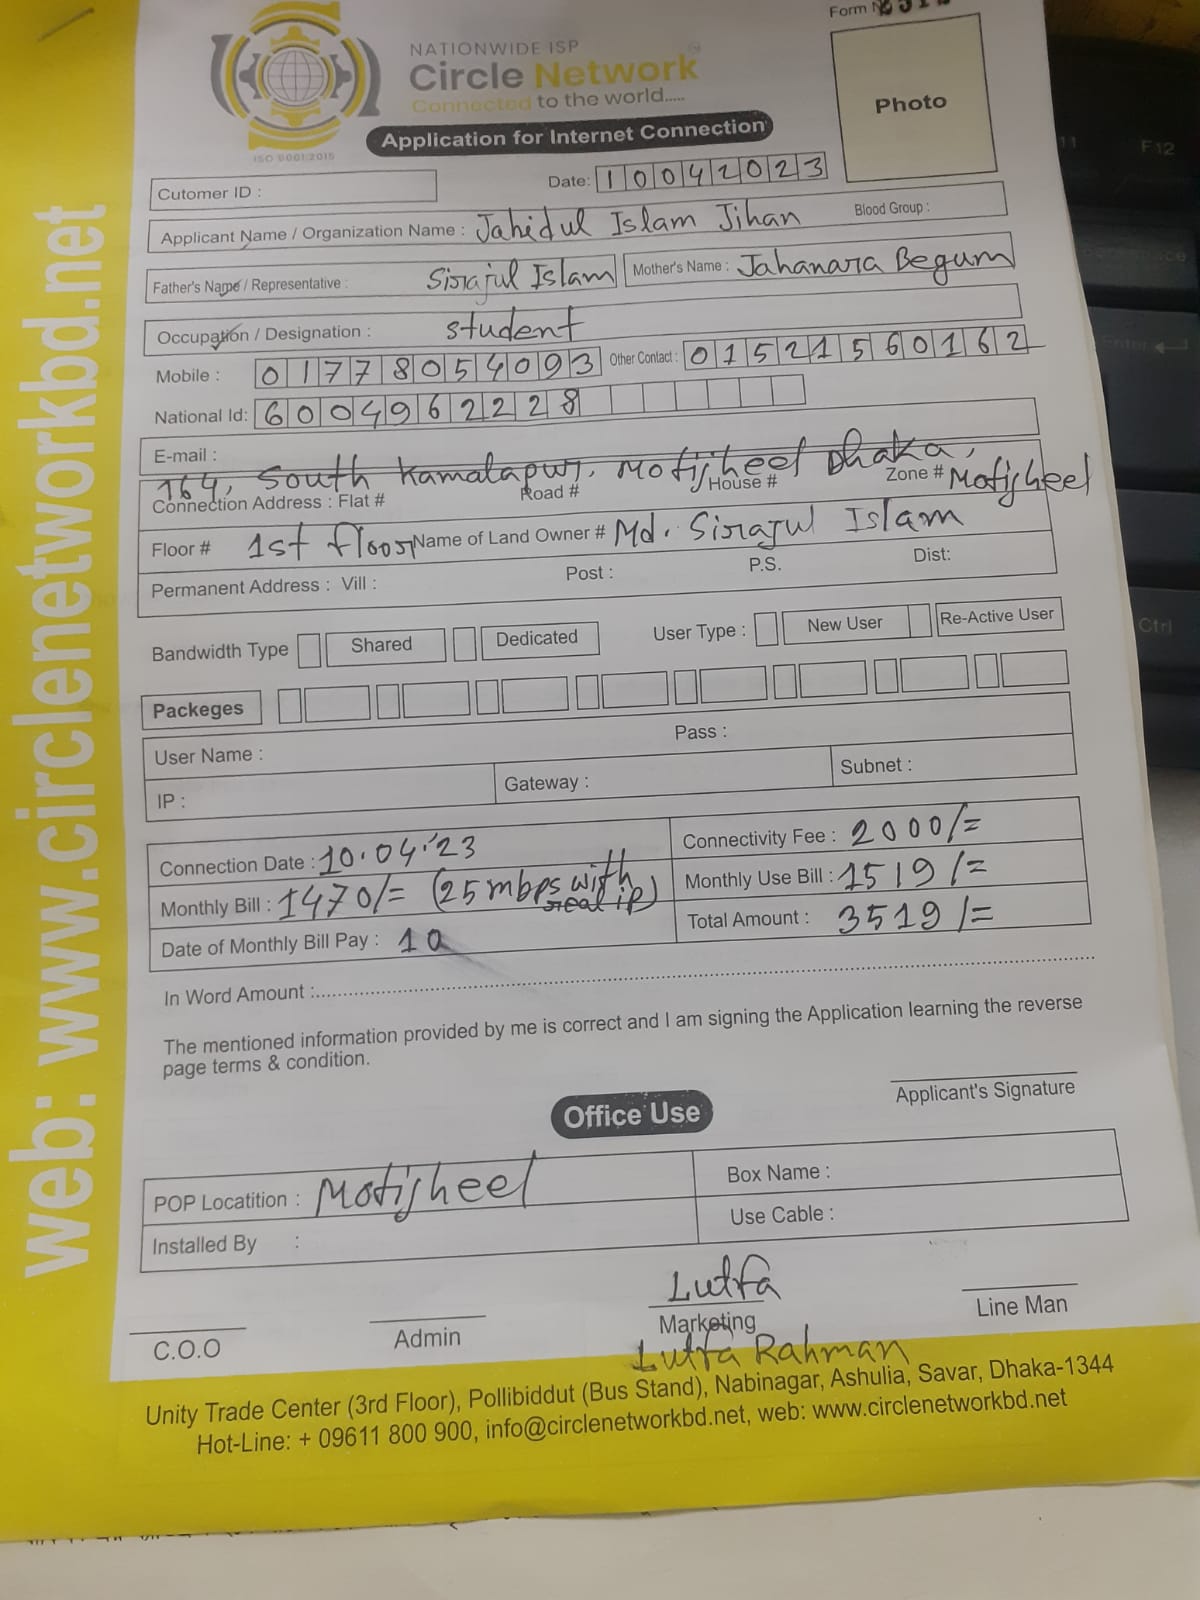 Form N
NATIONWIDE ISP
Circle Network
Connected to the world.....
ISO 9001:2015
Application for Internet Connection
Photo
Cutomer ID :
Date: 10042023
Applicant Name / Organization Name : Jahidul Islam Jihan Blood Group :
Father's Name / Representative : Sirajul Islam Mother's Name : Jahanara Begum
Occupation / Designation : student
Mobile : 01778054093 Other Contact : 01521560162
National Id: 6004962228
E-mail :
164, South Kamalapur, Motijheel Dhaka,
Connection Address : Flat # Road # House # Zone # Motijheel
Floor # 1st floor Name of Land Owner # Md. Sirajul Islam
Permanent Address : Vill : Post : P.S. Dist:
Bandwidth Type Shared Dedicated User Type : New User Re-Active User
Packeges
User Name : Pass :
IP : Gateway : Subnet :
Connection Date : 10.04.'23 Connectivity Fee : 2000/=
Monthly Bill : 1470/= (25 mbps with real ip) Monthly Use Bill : 1519/=
Date of Monthly Bill Pay : 10 Total Amount : 3519/=
In Word Amount :
The mentioned information provided by me is correct and I am signing the Application learning the reverse
page terms & condition.
Applicant's Signature
Office Use
POP Locatition : Motijheel Box Name :
Installed By : Use Cable :
Lutfa
C.O.O Admin Marketing Line Man
Lutfa Rahman
Unity Trade Center (3rd Floor), Pollibiddut (Bus Stand), Nabinagar, Ashulia, Savar, Dhaka-1344
Hot-Line: + 09611 800 900, info@circlenetworkbd.net, web: www.circlenetworkbd.net
web: www.circlenetworkbd.net
F12
Enter
Ctrl